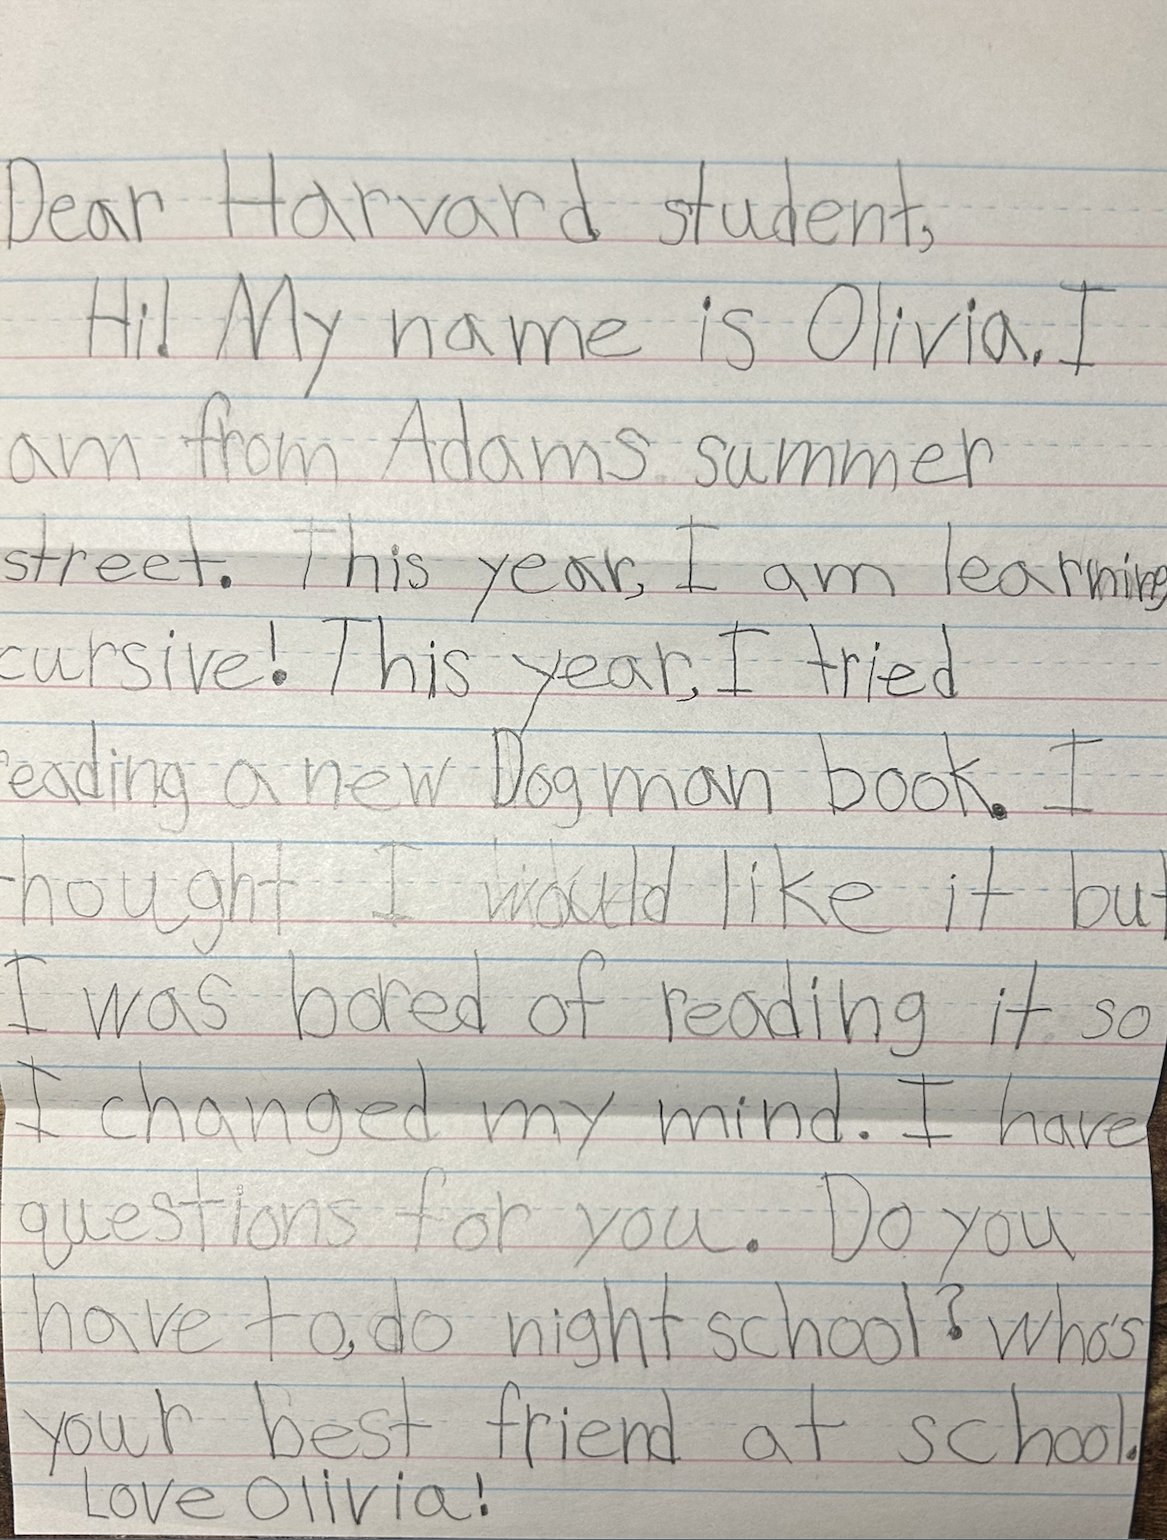 Dear Harvard student,
Hi! My name is Olivia. I
am from Adams summer
street. This year, I am learning
cursive! This year, I tried
reading a new Dogman book. I
thought I would like it but
I was bored of reading it so
I changed my mind. I have
questions for you. Do you
have to, do night school? Who's
your best friend at school.
Love Olivia!